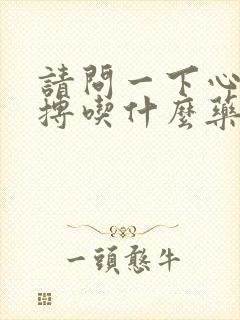 請問一下心
搏喫什麼藥
一頭憨牛